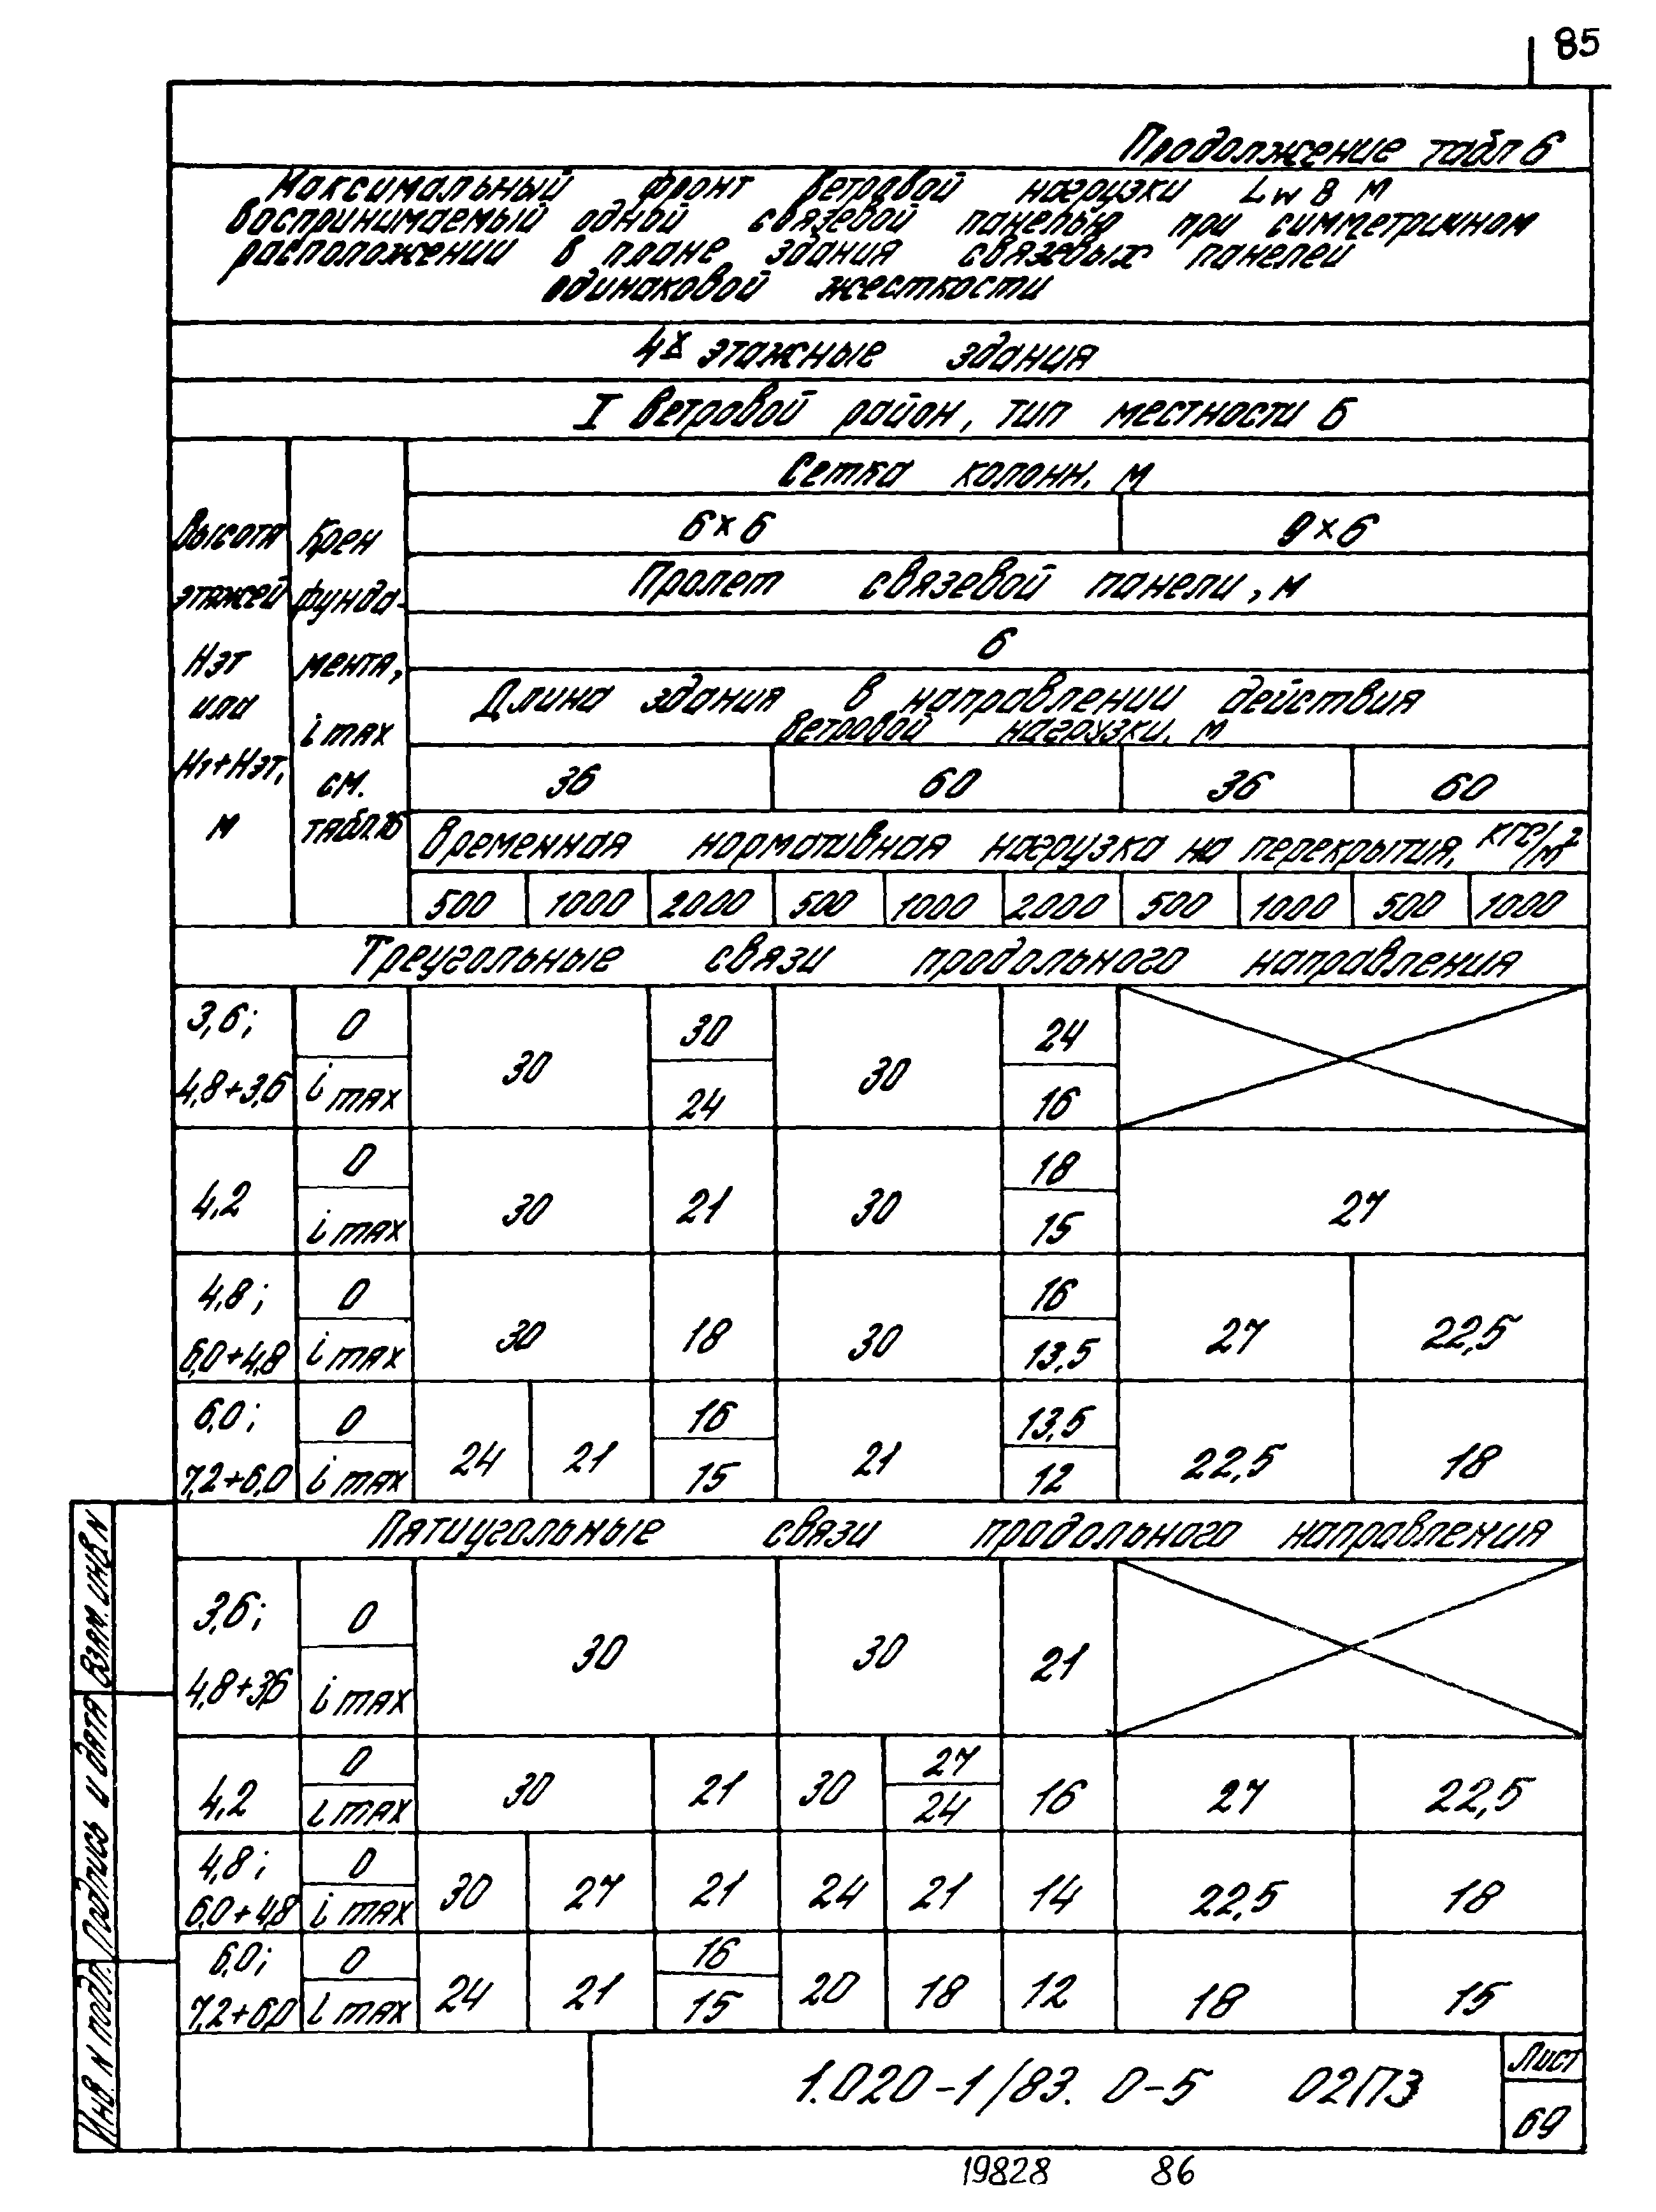 85
Продолжение табл 6
Максимальный фронт ветровой нагрузки Lw в м
воспринимаемый одной связевой панелью при симметричном
расположении в плане здания связевых панелей
одинаковой жесткости
4х этажные здания
I ветровой район, тип местности Б
Высота этажей Нэт или Н1+Нэт, м
Крен фунда-мента, i max см. табл.16
Сетка колонн, м
6×6 9×6
Пролет связевой панели, м
6
Длина здания в направлении действия
ветровой нагрузки, м
36 60 36 60
Временная нормативная нагрузка на перекрытия, кгс/м²
500 1000 2000 500 1000 2000 500 1000 500 1000
Треугольные связи продольного направления
3,6; 0 30 24
30 30
4,8+3,6 i max 24 16
0 18
4,2 30 21 30 27
i max 15
4,8; 0 16
30 18 30 27 22,5
6,0+4,8 i max 13,5
6,0; 0 16 13,5
24 21 21 22,5 18
7,2+6,0 i max 15 12
Пятиугольные связи продольного направления
3,6; 0
30 30 21
4,8+3,6 i max
0 27
4,2 30 21 30 16 27 22,5
i max 24
4,8; 0
30 27 21 24 21 14 22,5 18
6,0+4,8 i max
6,0; 0 16
24 21 20 18 12 18 15
7,2+6,0 i max 15
Взам. инв N
Подпись и дата
Инв. N подл.
1.020-1/83. 0-5 02ПЗ
Лист
69
19828 86